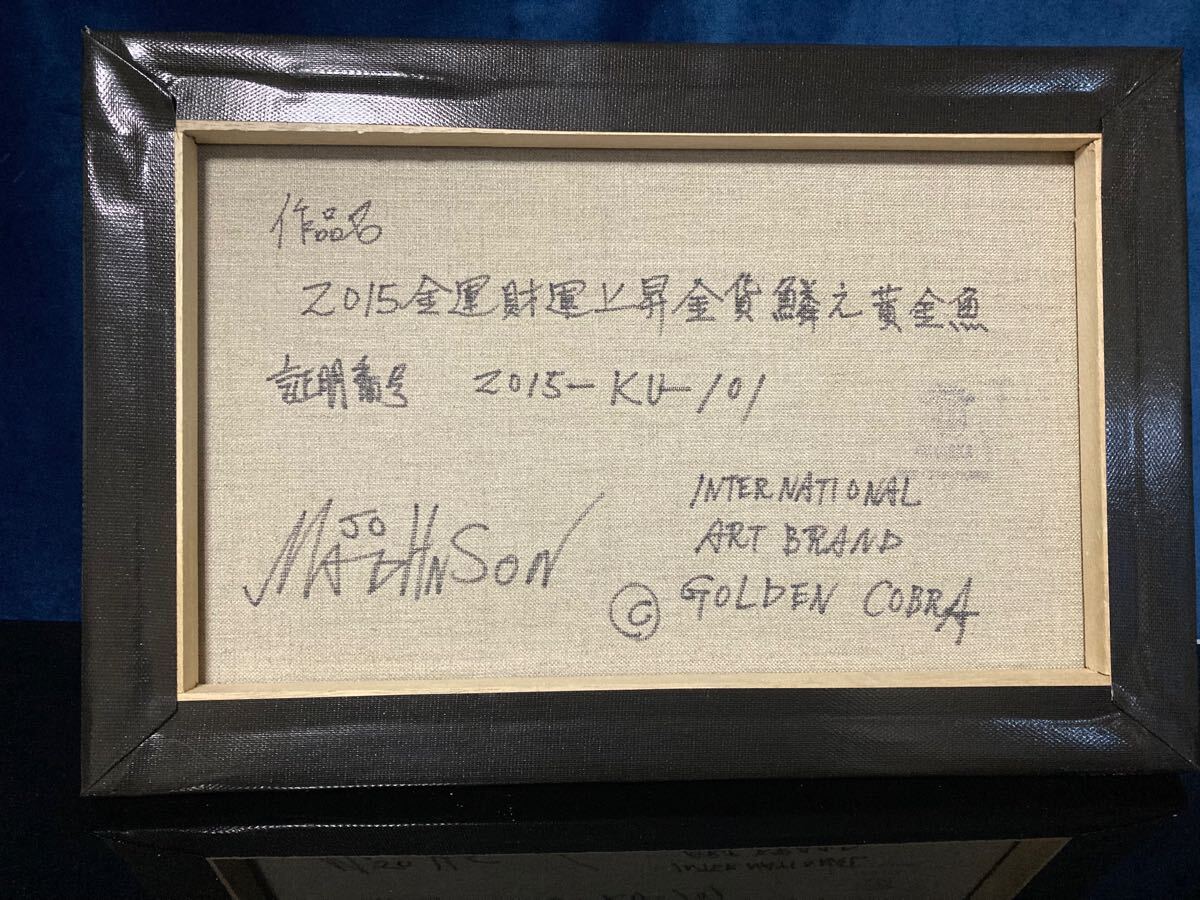 作品名
2015金運財運上昇金貨鱗之黄金魚
証明番号 2015-KU-101
MAJOHNSON
INTERNATIONAL
ART BRAND
© GOLDEN COBRA